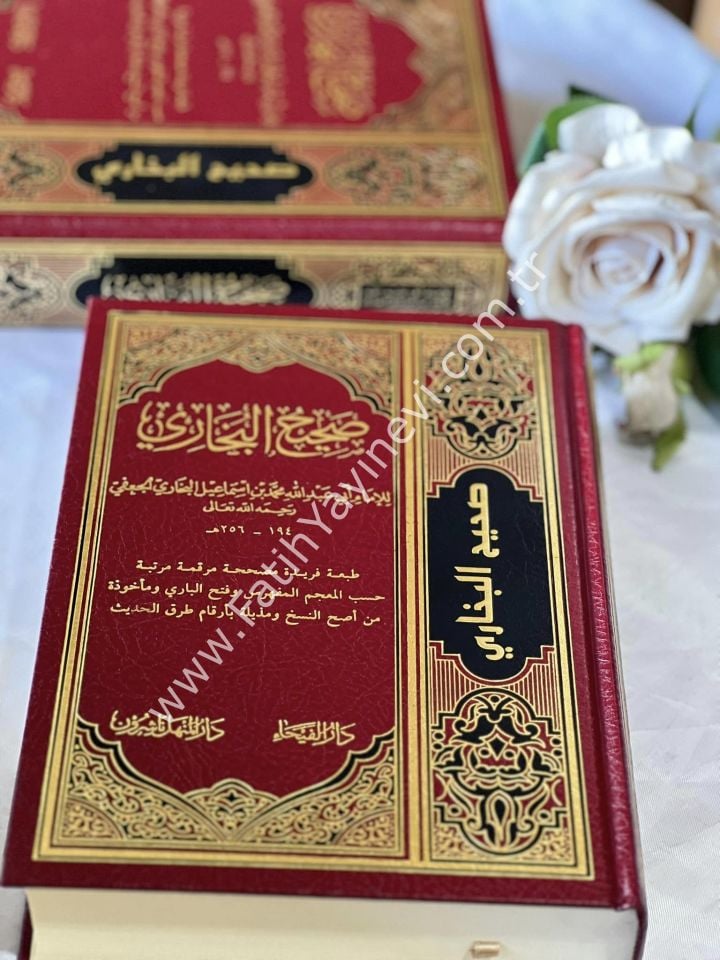 صحيح البخاري
صحيح البخاري
صَحِيحُ البُخَارِي
للإمام أبي عبد الله محمد بن اسماعيل البخاري الجعفي
رحمه الله تعالى
١٩٤ - ٢٥٦هـ
طبعة فريدة مصححة مرقمة مرتبة
حسب المعجم المفهرس وفتح الباري ومأخوذة
من أصح النسخ ومذيلة بأرقام طرق الحديث
دار الفيحاء
دار المنهل ناشرون
صحيح البخاري
www.FatihYayinevi.com.tr